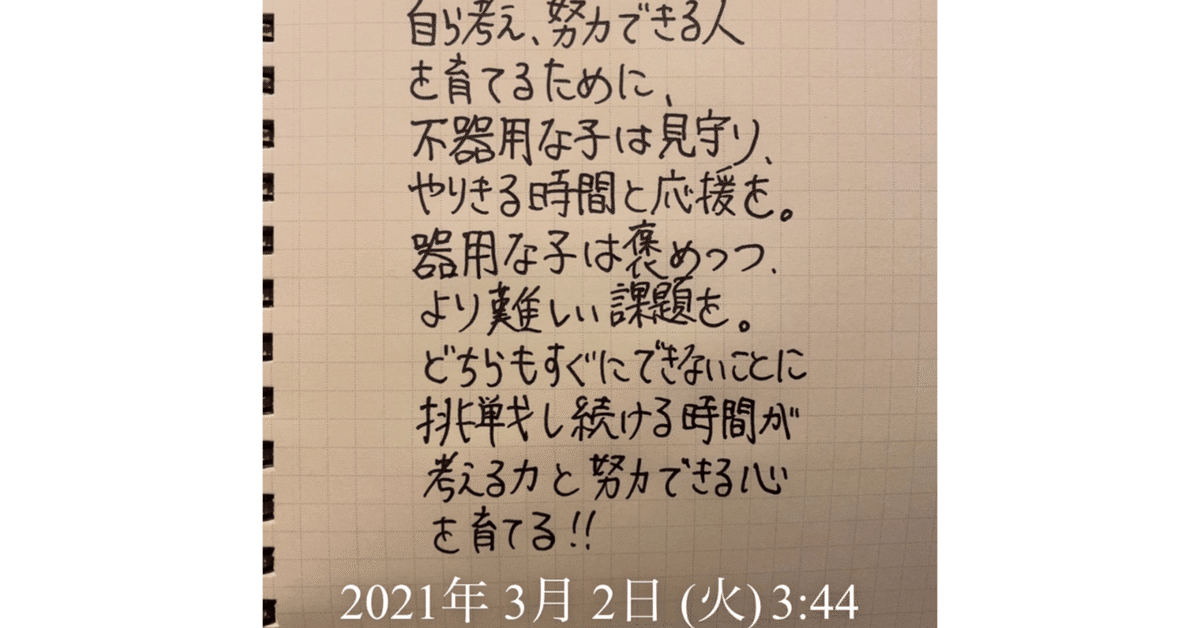 自ら考え、努力できる人
を育てるために、
不器用な子は見守り、
やりきる時間と応援を。
器用な子は褒めつつ、
より難しい課題を。
どちらもすぐにできないことに
挑戦し続ける時間が
考える力と努力できる心
を育てる!!
2021年 3月 2日 (火) 3:44